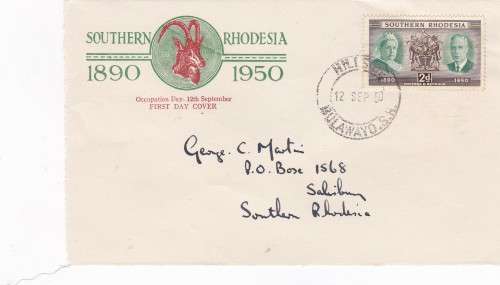 SOUTHERN RHODESIA
1890 1950
Occupation Day- 12th September
FIRST DAY COVER
SOUTHERN RHODESIA
1890 2d 1950
POSTAGE & REVENUE
12 SEP 50
BULAWAYO. S.R.
George. C. Martin
P.O. Boxe 1568
Salisbury
Southern Rhodesia